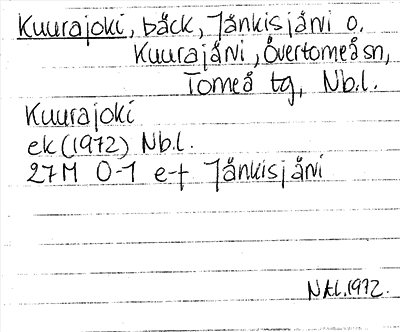 Kuurajoki, bäck, Jänkisjärvi o.
Kuurajärvi, Övertorneå sn,
Torneå tg, Nb.l.
Kuurajoki
ek (1972) Nb.l.
27M 0-1 e-f Jänkisjärvi
1972.